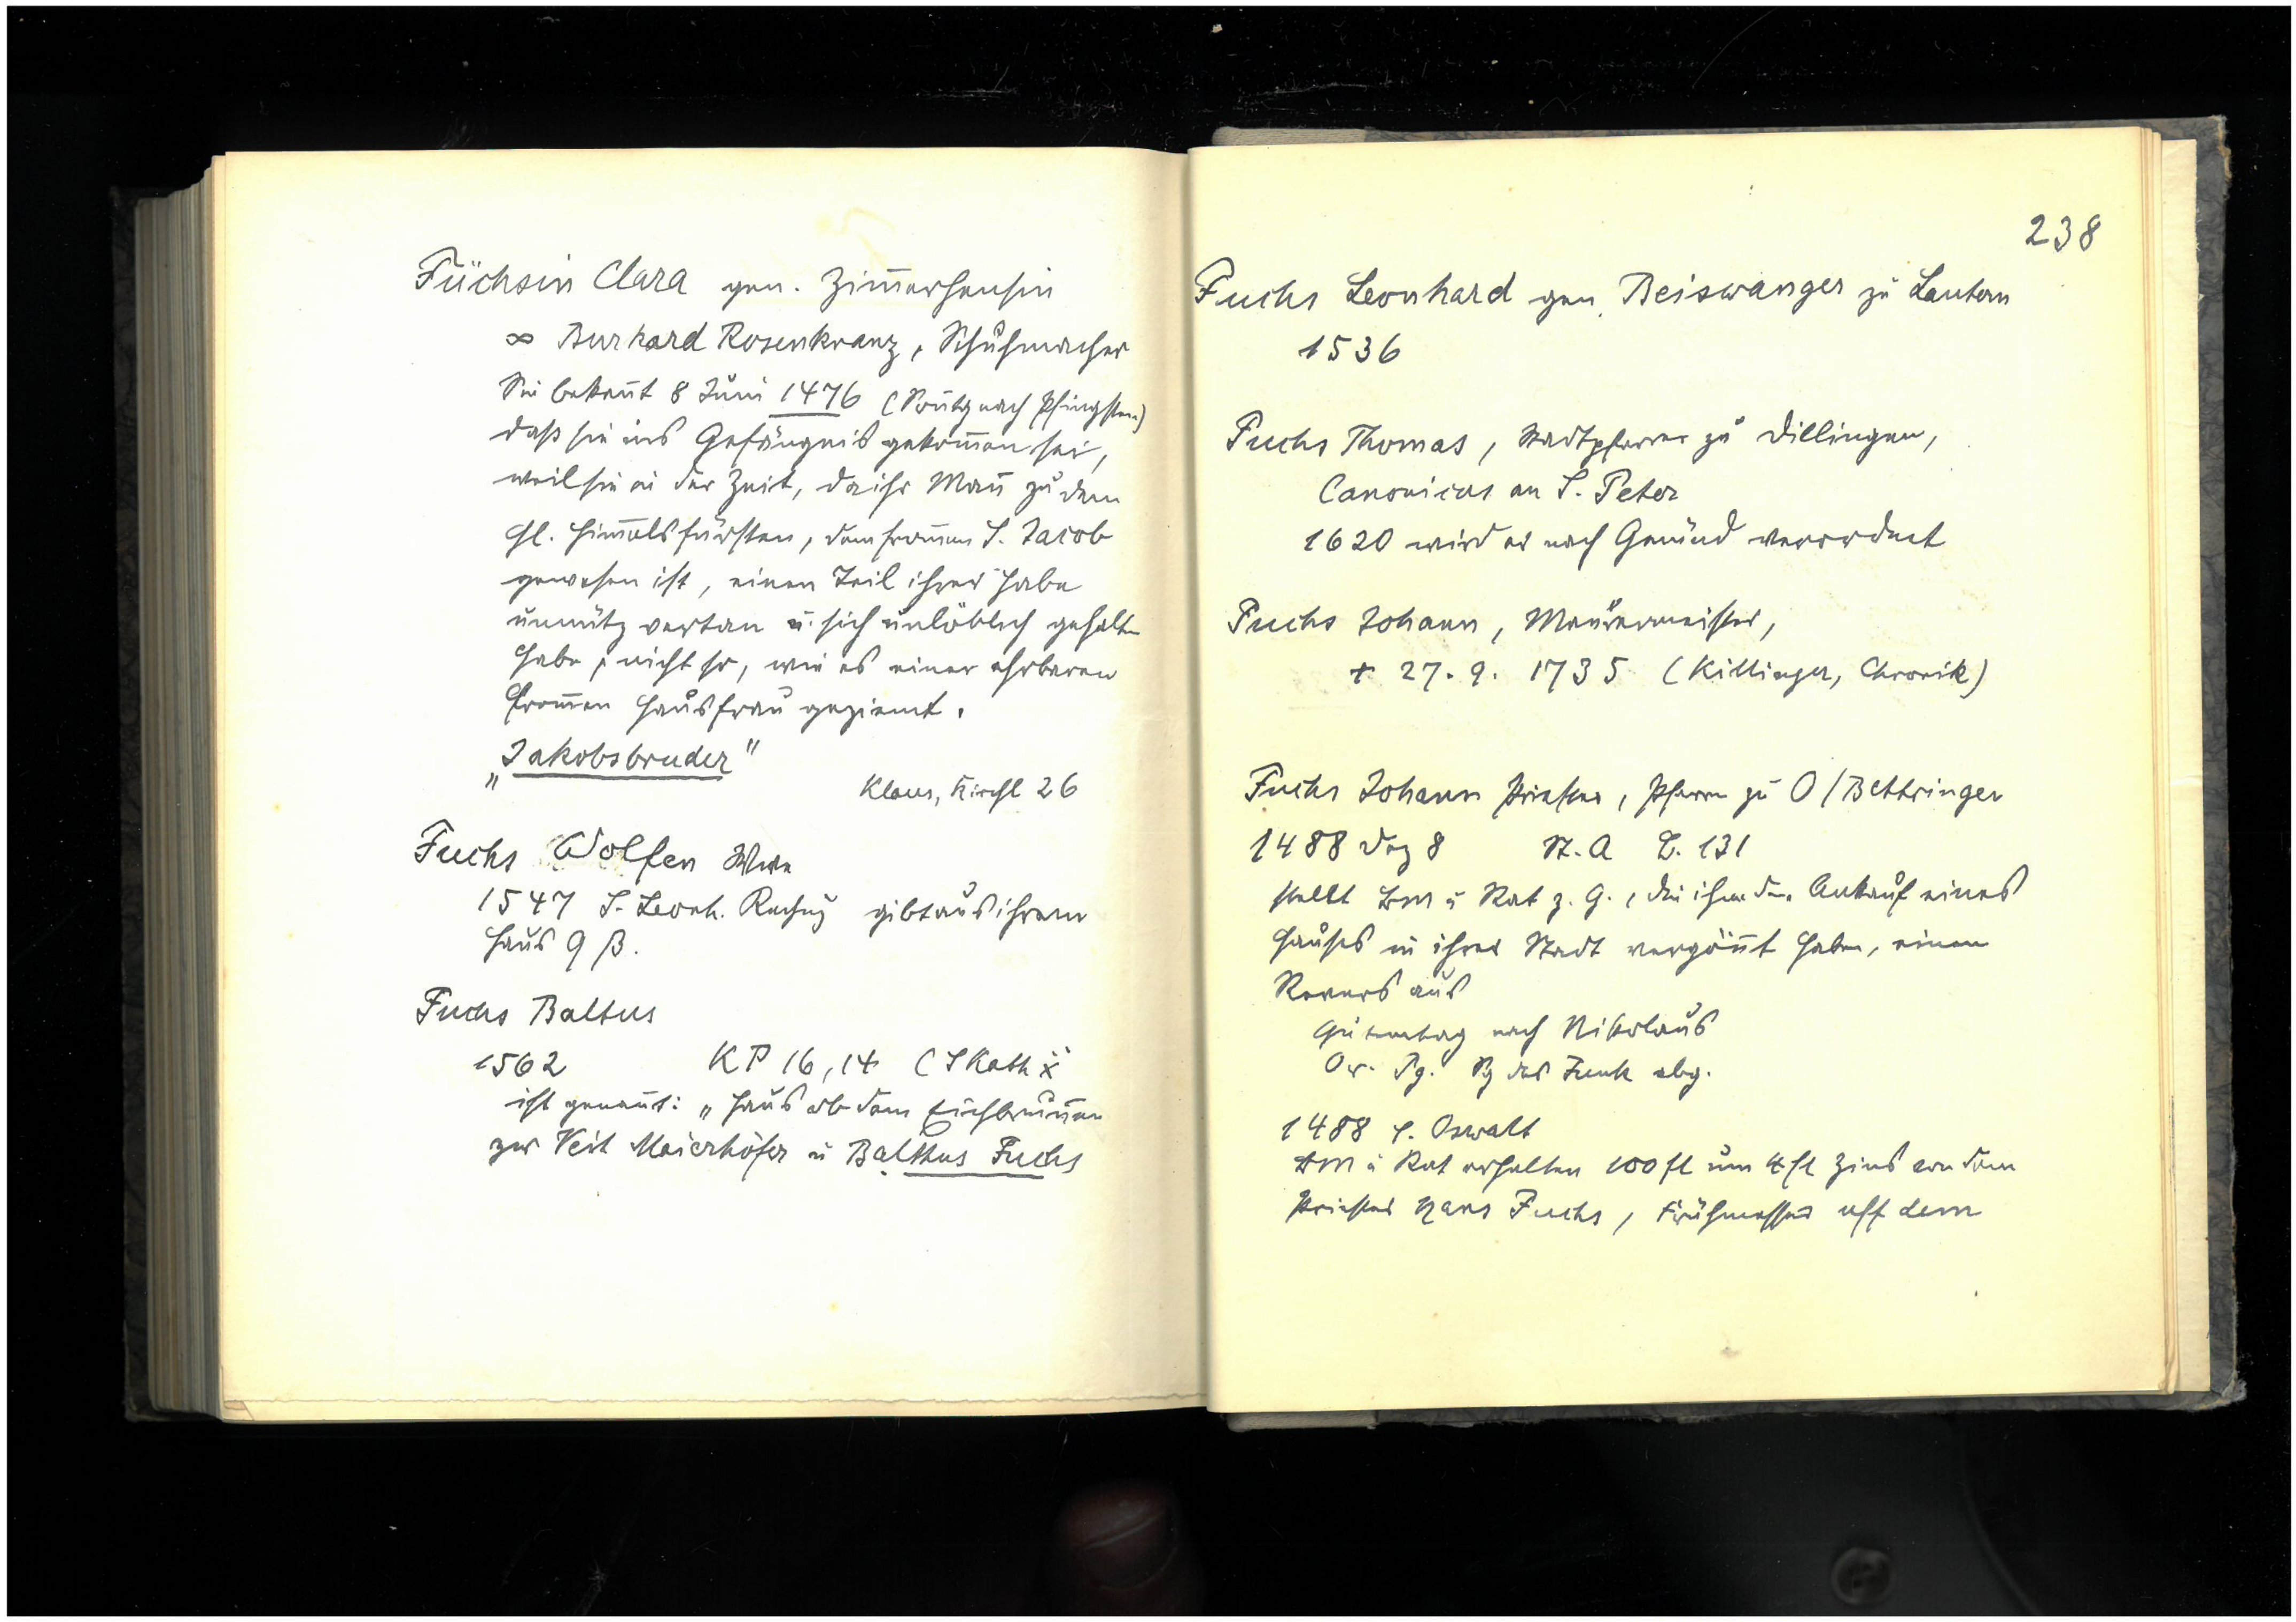 Füchsin Clara gen. Zim̄erhensin
∞ Burkard Rosenkranz, Schuhmacher
Sie bekeñt 8 Juni 1476 (Soñtg nach Pfingsten)
daß sie ins Gefängnis gekom̄en sei,
weil sie in der Zeit, da ihr Mañ zu dem
hl. Him̄elsfürsten, dem from̄en S. Jacob
gewesen ist, einen Teil ihrer Habe
unnütz vertan u. sich unlöblich gehalten
habe, nicht so, wie es einer ehrbaren
from̄en Hausfrau geziemt.
„Jakobsbruder"
Klaus, Kirchl 26
Fuchs Wolfen Wwe
1547 S. Leonh. Rechng gibt aus ihrem
Haus 9 ß.
Fuchs Baltus
1562 KP 16,14 (S Kath
ist genañt: „Haus ob dem Eichbruñen
zw Veit Maierhöfer u Balthus Fuchs
238
Fuchs Leonhard gen. Beiswanger zu Lautern
1536
Fuchs Thomas, Stadtpfarrer zu Dillingen,
Canonicus an S. Peter
1620 wird er nach Gmünd verordnet
Fuchs Johann, Maurermeister,
+ 27. 9. 1735 (Killinger, Chronik)
Fuchs Johann Priester, Pfarrer zu O/Bettringen
1488 Dez 8 St. A 131
stellt BM u Rat z. G., die ihm den Ankauf eines
Hauses in ihrer Stadt vergöñt haben, einen
Revers aus
Gutemtag nach Nikolaus
Or. Pg. Sg des Funk abg.
1488 S. Oswalt
BM u Rat erhalten 100 fl um 4 fl Zins von dem
Priester Hans Fuchs, Frühmesser uff dem